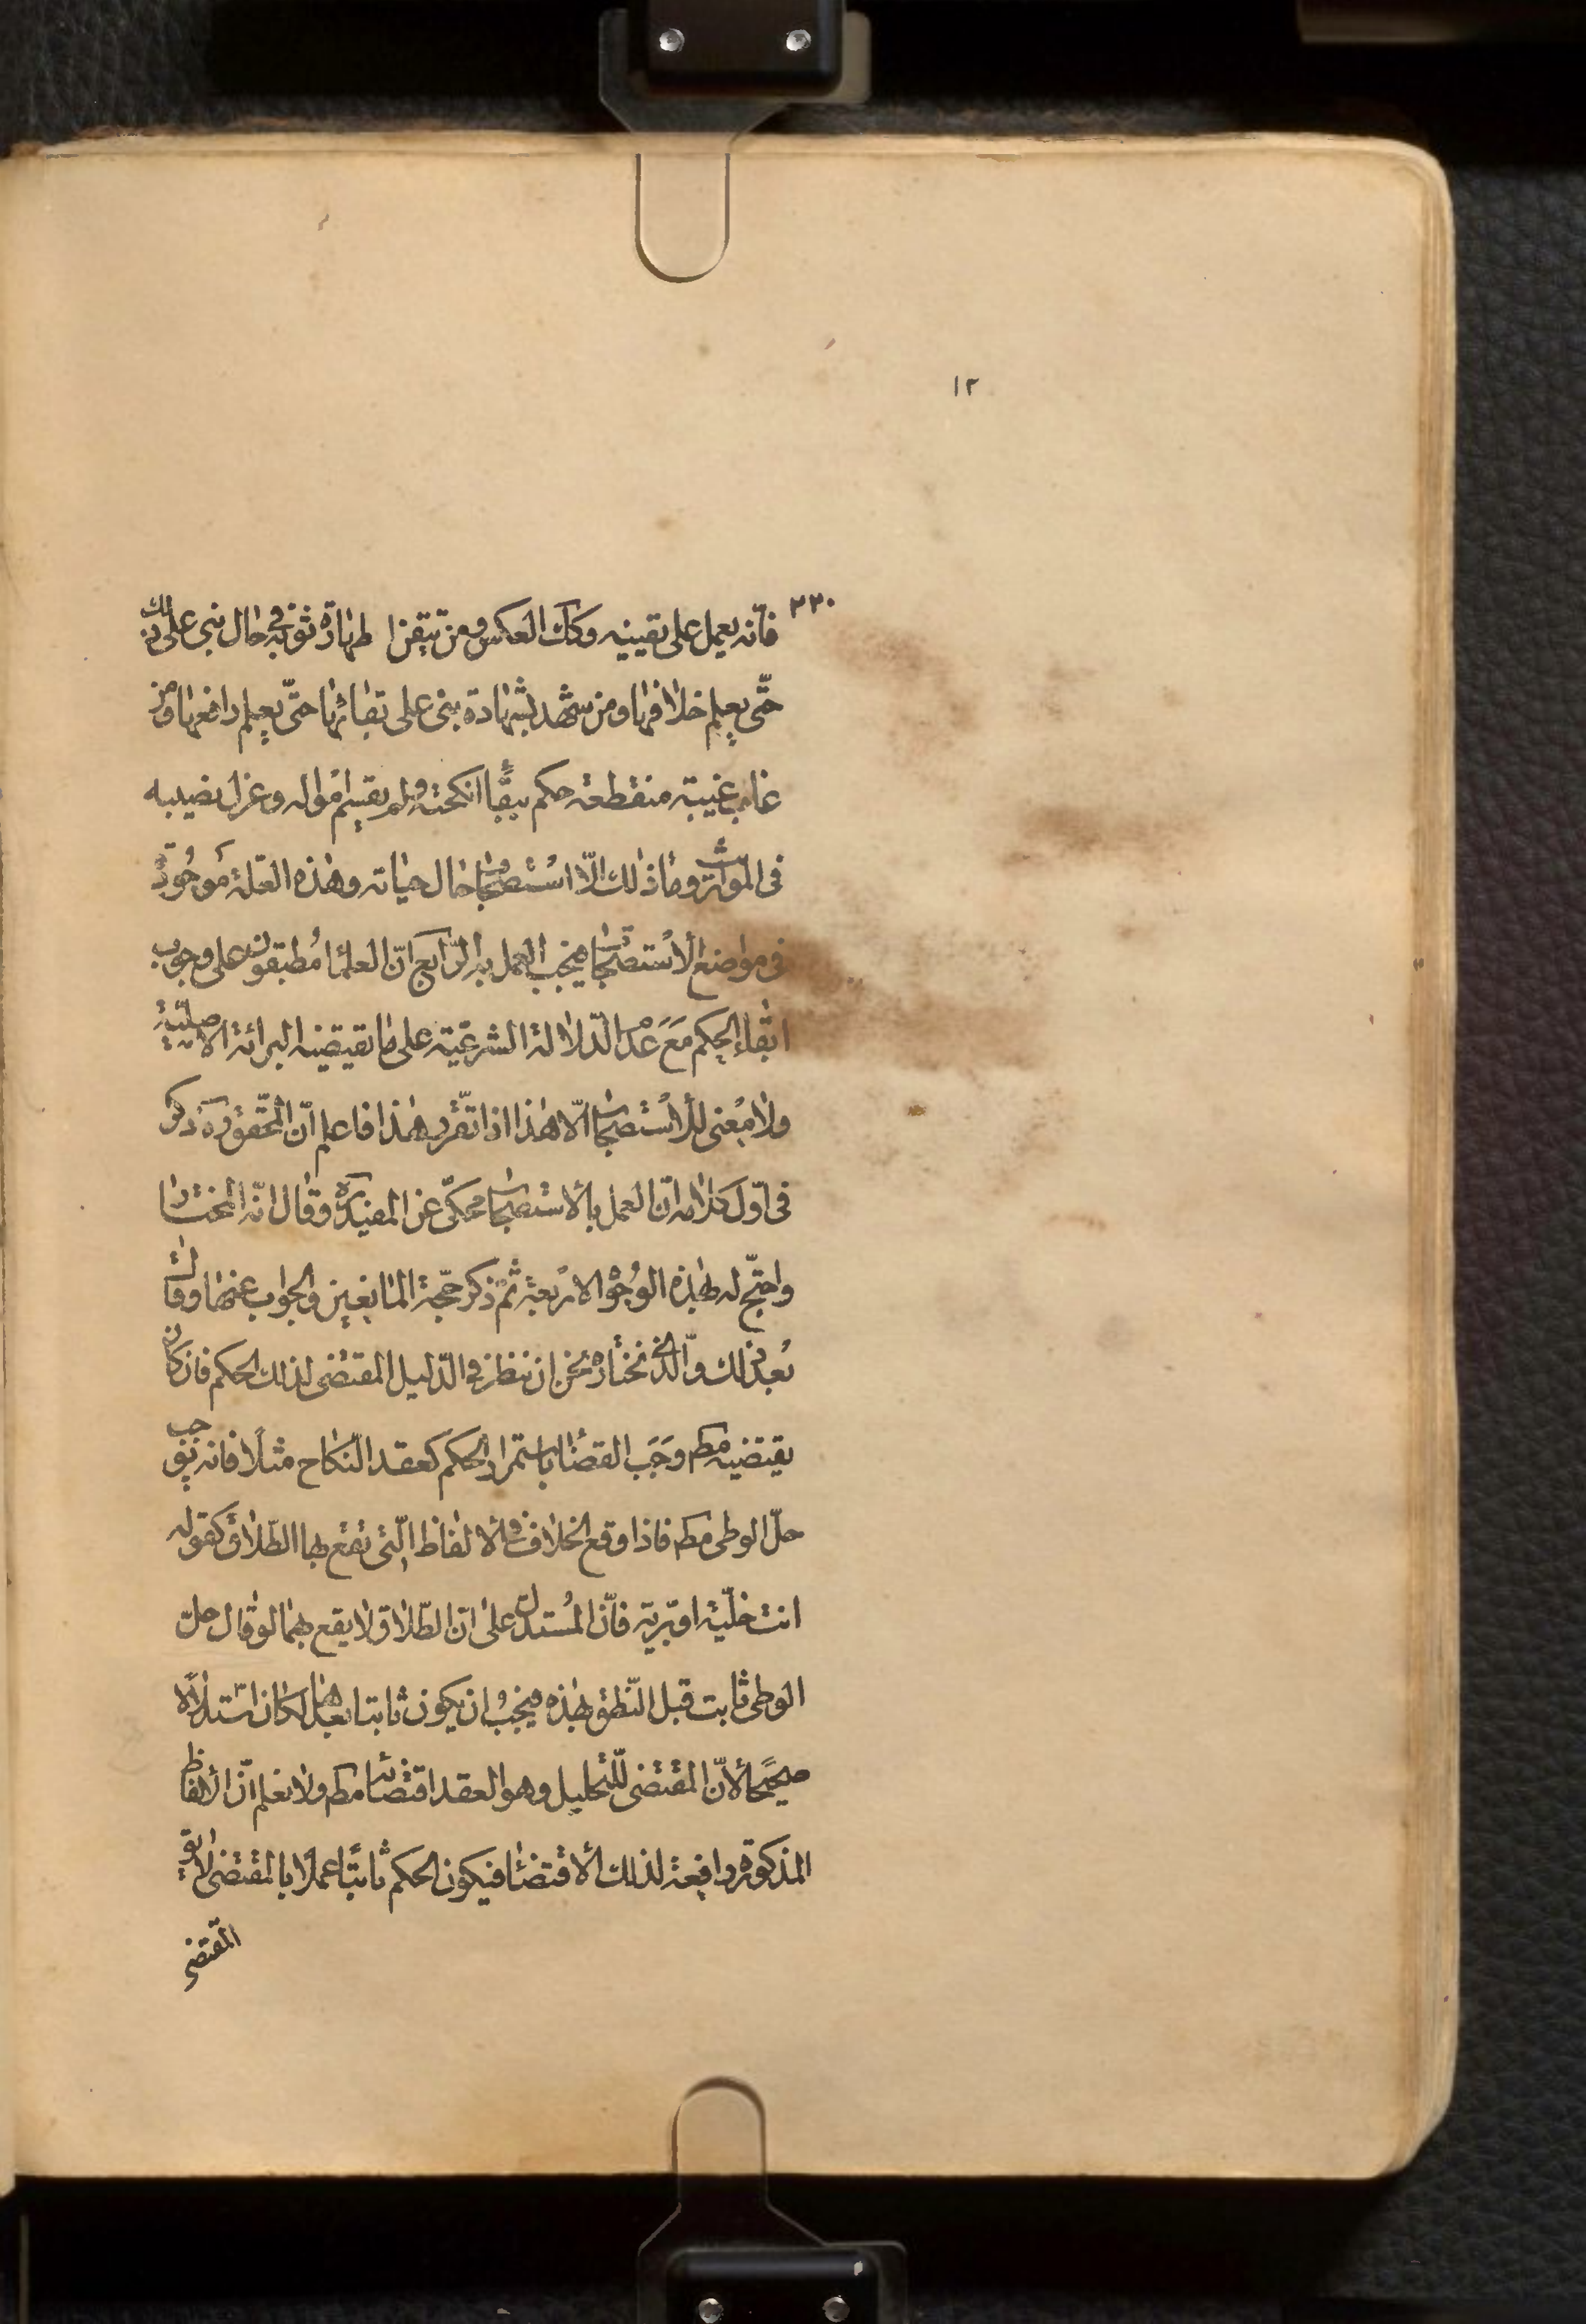 ١٢
٢٣٠
فانّه يعمل على يقينه وكك العكس ومن تيقن طهارة ثوبه فى حال بنى على ذلك
حتّى يعلم خلافها ومن شهد بشهادة بنى على بقائها حتّى يعلم رافعها ومن
غاب غيبة منقطعة حكم ببقاء انكحته ولم يقسم امواله وعزل نصيبه
فى المواريث وما ذلك الّا استصحاب حال حياته وهذه العلّة موجودة
فى مواضع الاستصحاب فيجب العمل به الرّابع انّ العلماء مطبقون على وجوب
ابقاء الحكم مع عدم الدّلالة الشرعيّة على ما تقيضيه البرائة الاصليّة
ولا معنى للاستصحاب الّا هذا اذا تقّرر هذا فاعلم انّ المحّقق ره ذكر
فى اوّل كلامه انّ العمل بالاستصحاب محكىّ عن المفيد ره وقال انّه المختار
واحتجّ له بهذه الوجوه الاربعة ثمّ ذكر حجّة المانعين والجواب عنها وقال
بعد ذلك والّذى نختاره نحن ان ننظر فى الدّليل المقتضى لذلك الحكم فان كان
يقتضيه مط وجب القضاء باستمرار الحكم كعقد النّكاح مثلًا فانه يوجب
حلّ الوطى مط فاذا وقع الخلاف فى الالفاظ الّتى تقع بها الطّلاق كقوله
انت خليّة او بريّة فانّ المستدل على انّ الطّلاق لا يقع بهما لو قال حلّ
الوطى ثابت قبل النّطق بهذه فيجب ان يكون ثابتا بعدها لكان استدلالًا
صحيحًا لانّ المقتضى للتحليل وهو العقد اقتضاه مط ولا نعلم انّ الالفاظ
المذكورة رافعة لذلك الاقتضاء فيكون الحكم ثابتًا عملا بالمقتضى لا يق
المقتضى